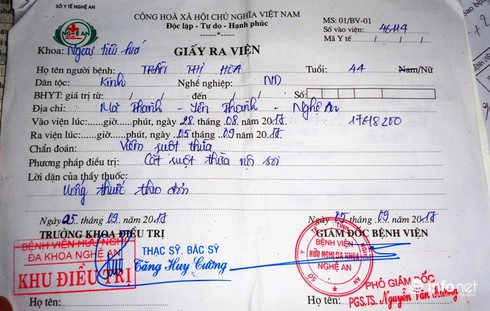 SỞ Y TẾ NGHỆ AN
CỘNG HOÀ XÃ HỘI CHỦ NGHĨA VIỆT NAM
Độc lập - Tự do - Hạnh phúc
MS: 01/BV-01
Số vào viện: 46414
Mã Y tế
NGHỆ AN
Khoa: Ngoại tiêu hoá
GIẤY RA VIỆN
Họ tên người bệnh: TRẦN THỊ HOA Tuổi: 44 Nam/Nữ
Dân tộc: Kinh Nghề nghiệp: ND
BHYT: giá trị từ / / đến / / Số
Địa chỉ: Thanh - Yên Thành - Nghệ An
Vào viện lúc: giờ phút, ngày 28 tháng 08 năm 2017 17618200
Ra viện lúc: giờ phút, ngày 05 tháng 09 năm 2017
Chẩn đoán: Viêm ruột thừa
Phương pháp điều trị: Cắt ruột thừa nội soi
Lời dặn của thầy thuốc:
Uống thuốc theo đơn
Ngày 05 tháng 09 năm 2017
Ngày 05 tháng 09 năm 2017
TRƯỞNG KHOA ĐIỀU TRỊ
GIÁM ĐỐC BỆNH VIỆN
BỆNH VIỆN HỮU NGHỊ
ĐA KHOA NGHỆ AN
KHU ĐIỀU TRỊ
THẠC SỸ. BÁC SỸ
Tăng Huy Cường
BỆNH VIỆN
HỮU NGHỊ ĐA KHOA
NGHỆ AN
PHÓ GIÁM ĐỐC
PGS.TS. Nguyễn Văn Hương
Họ tên:
Họ tên:
infonet